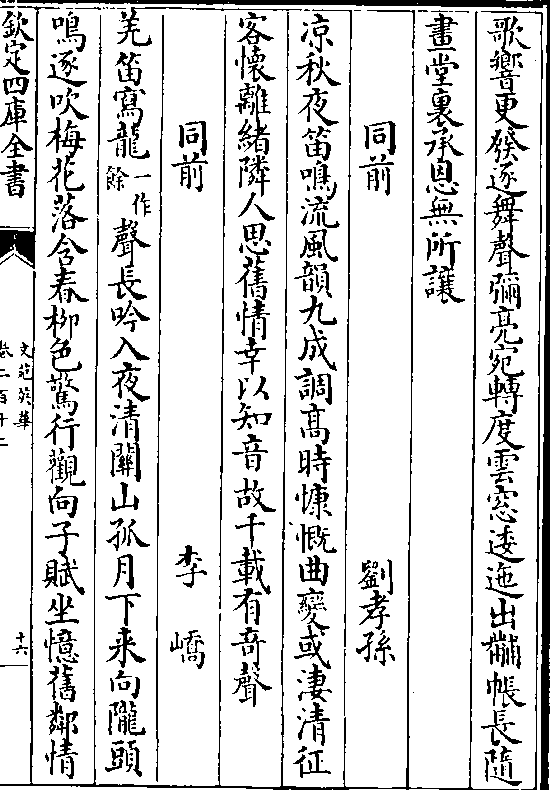 歌響更發逐舞聲彌亮宛轉度雲窓逶迤出黼帳長隨
畫堂裏承恩無所讓
同前 劉孝孫
凉秋夜笛鳴流風韻九成調髙時慷慨曲變或凄清征
客懷離緒隣人思舊情幸以知音故千載有竒聲
同前 李嶠
羌笛寫龍一作餘聲長吟入夜清關山孤月下来向隴頭
鳴逐吹梅花落含春柳色驚行觀向子賦坐憶舊鄰情
欽定四庫全書
文苑英華
卷二百十二
十六